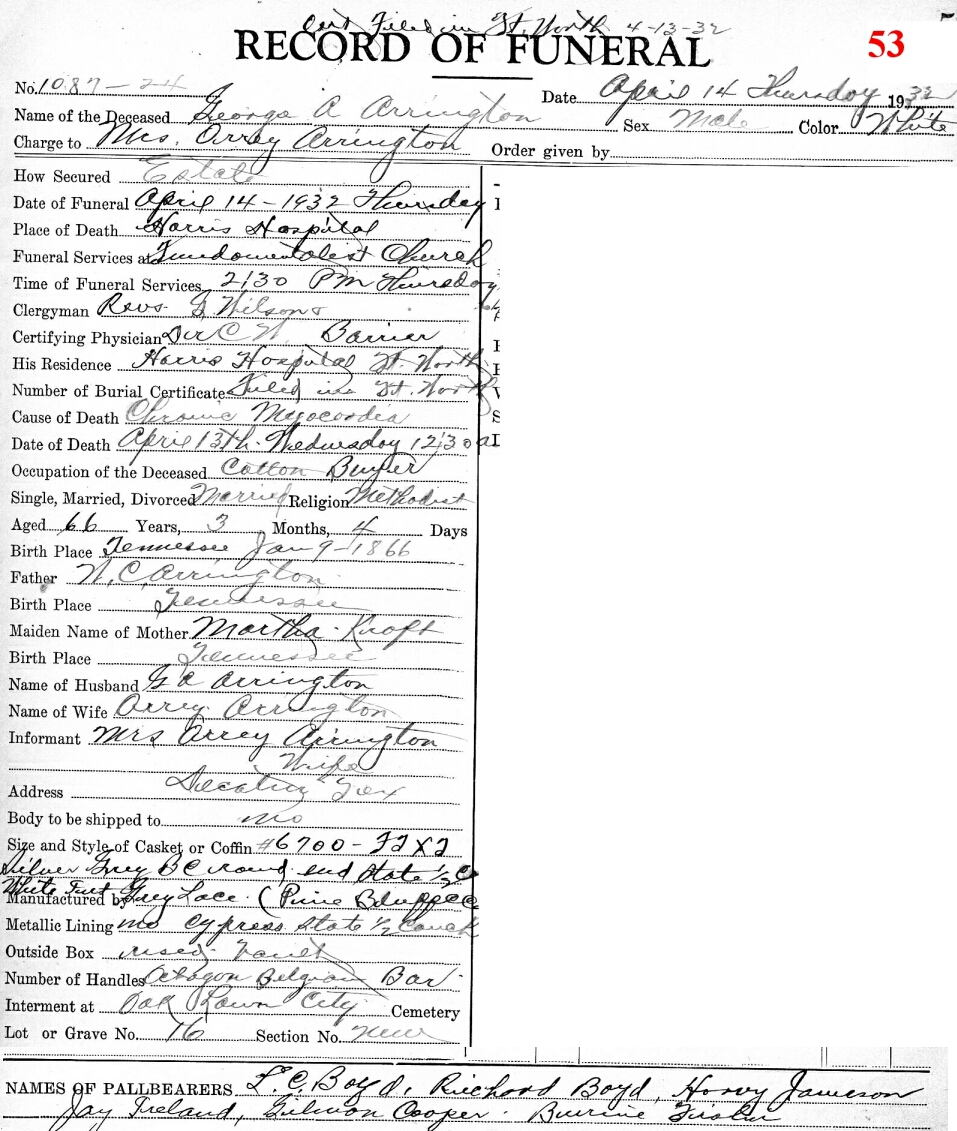 Cert Filed in Ft. Worth 4-13-32
RECORD OF FUNERAL 53
No. 1087-24 Date April 14 Thursday 1932
Name of the Deceased George A Arrington Sex Male Color White
Charge to Mrs. Orrey Arrington Order given by
How Secured Estate
Date of Funeral April 14-1932 Thursday
Place of Death Harris Hospital
Funeral Services at Fundamentalest Church
Time of Funeral Services 2:30 PM Thursday
Clergyman Revs. Wilson
Certifying Physician Dr C W Barrier
His Residence Harris Hospital Ft. Worth
Number of Burial Certificate Filed in Ft. Worth
Cause of Death Chronic Myocordia
Date of Death April 13th. Wednesday 12:30 a
Occupation of the Deceased Cotton Buyer
Single, Married, Divorced Married Religion Methodist
Aged 66 Years, 3 Months, 4 Days
Birth Place Tennessee Jan 9-1866
Father W. C. Arrington
Birth Place Tennessee
Maiden Name of Mother Martha Kroft
Birth Place Tennessee
Name of Husband G A Arrington
Name of Wife Orrey Arrington
Informant Mrs Orrey Arrington
Wife
Address Decatur Tex
Body to be shipped to no
Size and Style of Casket or Coffin #6700-
Silver Grey B C round end State 1/2 C
Manufactured by Grey Lace. (Pine Bluff
Metallic Lining no Cypress State 1/2 Couch
Outside Box used Vault
Number of Handles Octagon Belgian Bar
Interment at Oak Lawn City Cemetery
Lot or Grave No. 16 Section No. New
NAMES OF PALLBEARERS L. C. Boyd, Richard Boyd, Harvy Jameson
Jay Ireland, Gilmon Cooper.